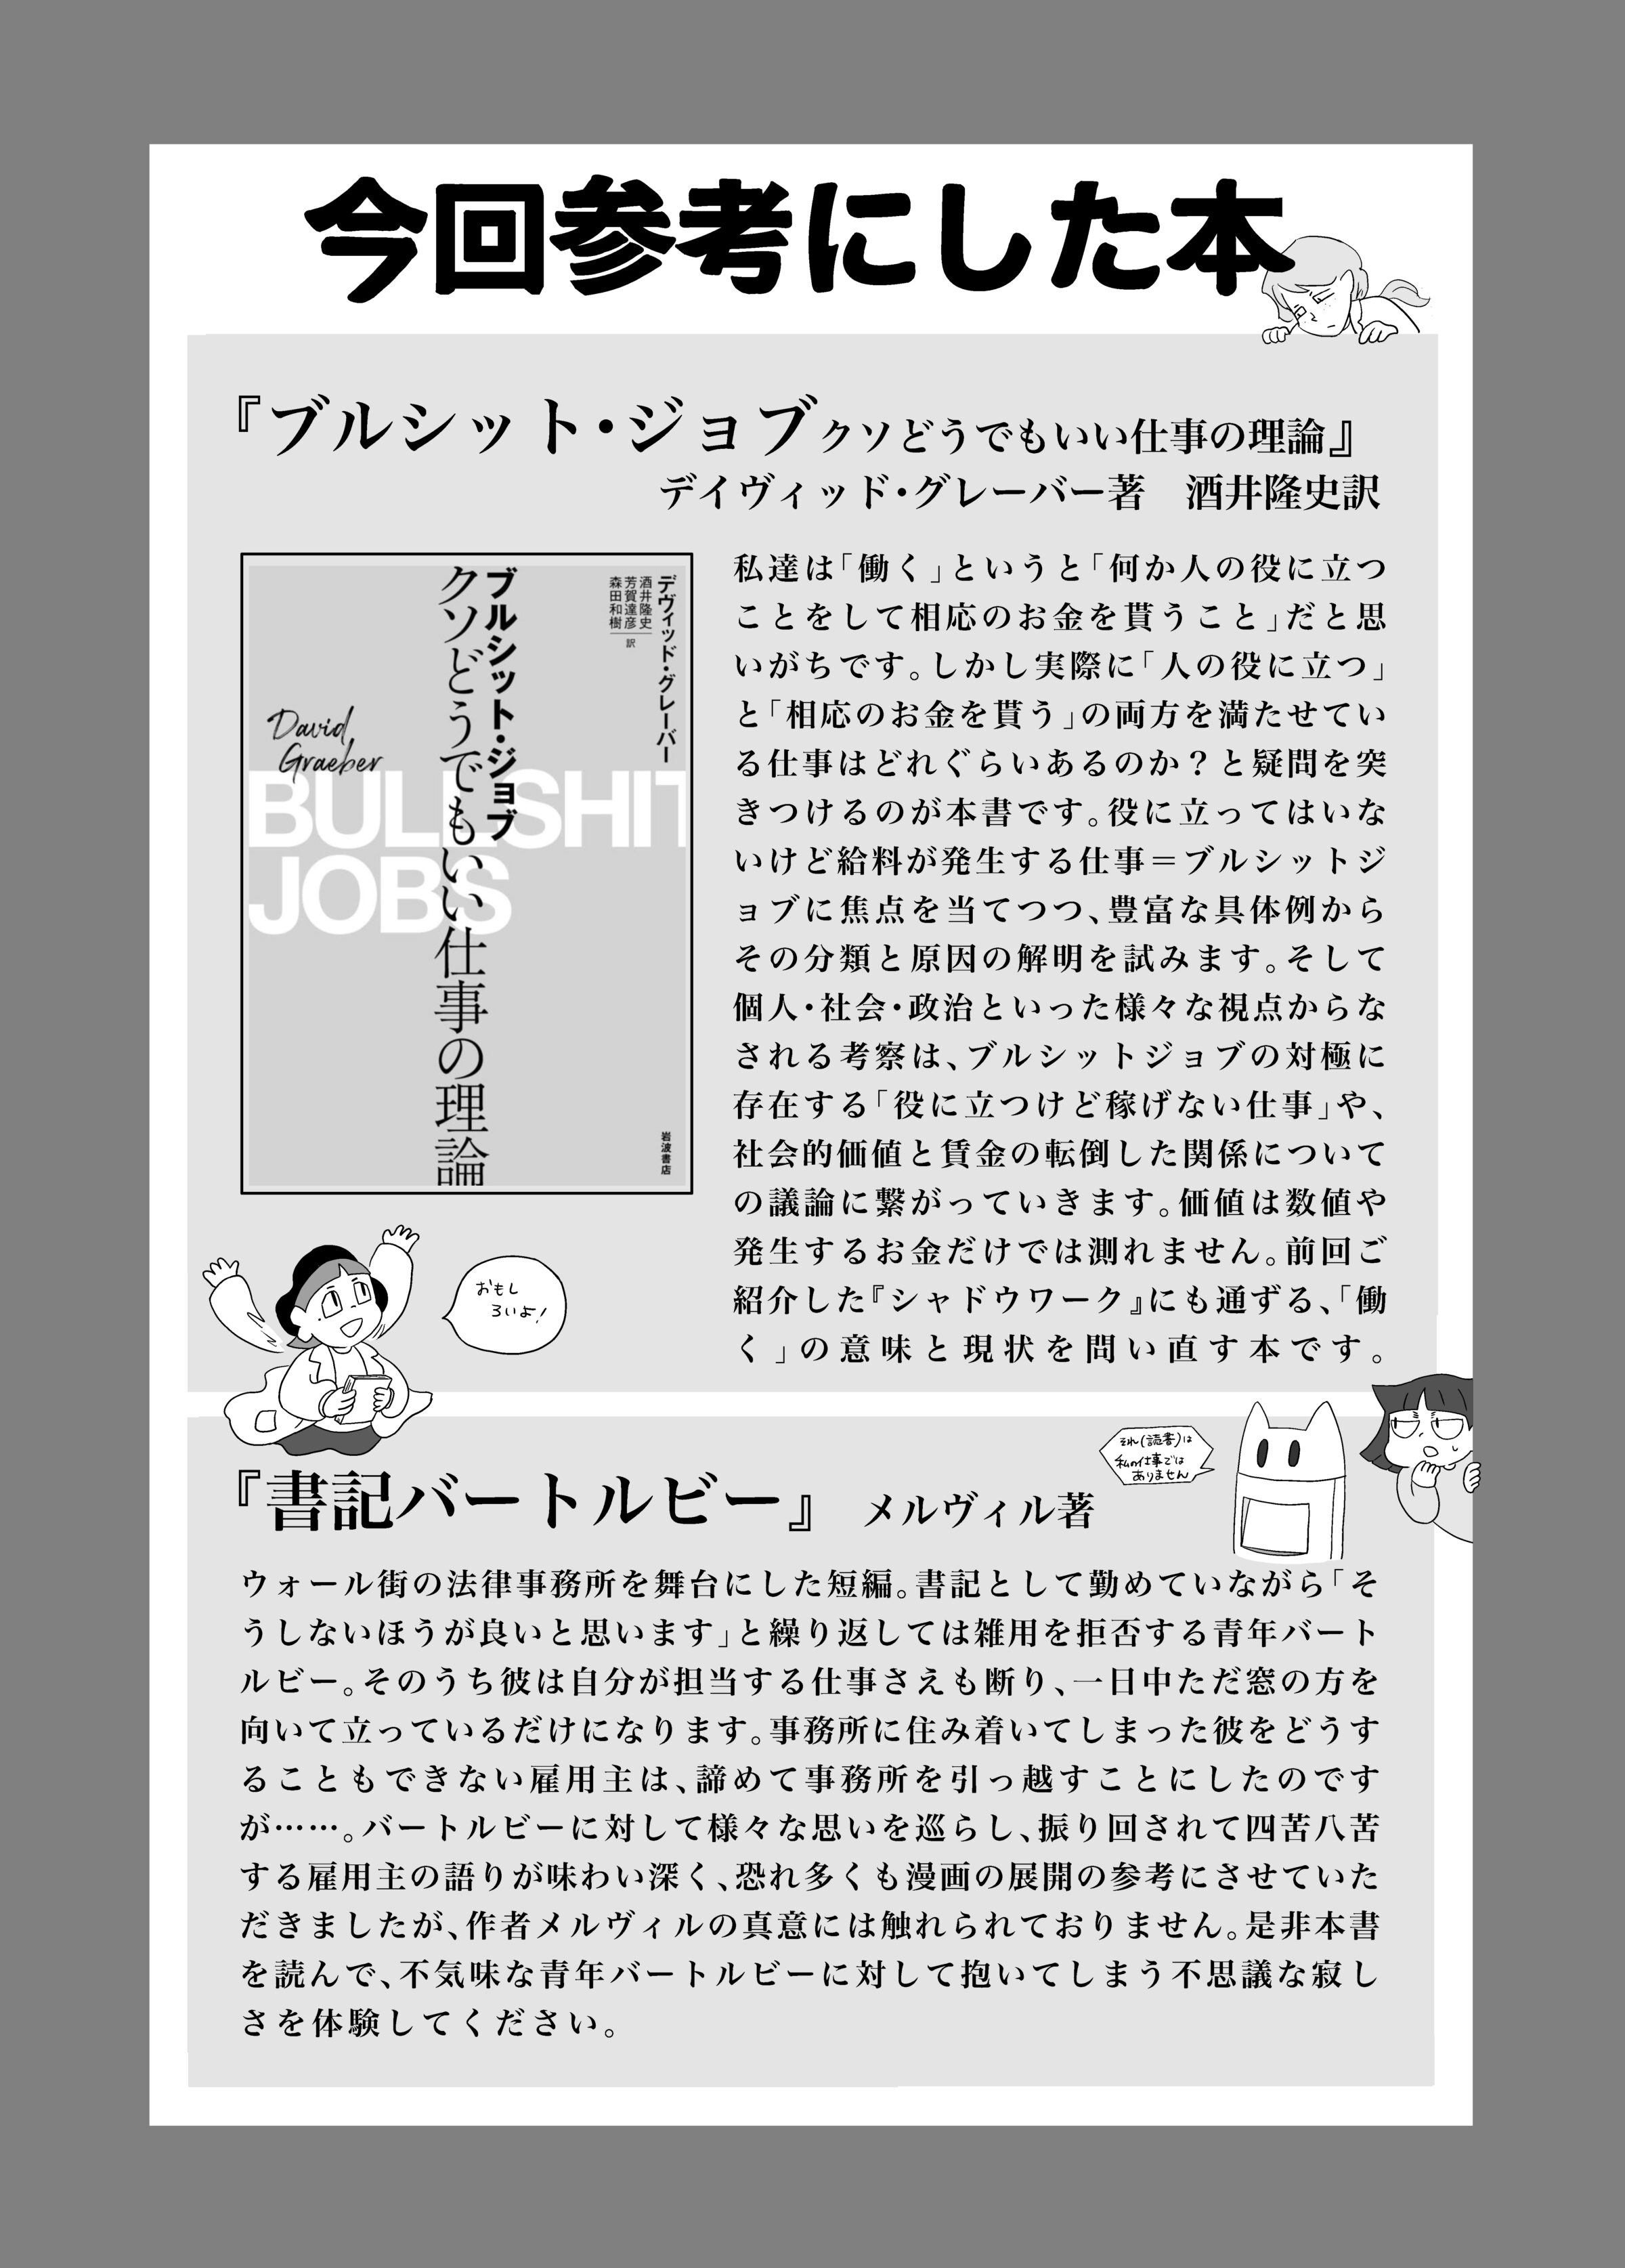 今回参考にした本
『ブルシット・ジョブ クソどうでもいい仕事の理論』
デイヴィッド・グレーバー著　酒井隆史訳
デヴィッド・グレーバー
酒井隆史
芳賀達彦
森田和樹
訳
ブルシット・ジョブ
クソどうでもいい仕事の理論
David
Graeber
BULLSHIT
JOBS
岩波書店
私達は「働く」というと「何か人の役に立つ
ことをして相応のお金を貰うこと」だと思
いがちです。しかし実際に「人の役に立つ」
と「相応のお金を貰う」の両方を満たせてい
る仕事はどれぐらいあるのか？と疑問を突
きつけるのが本書です。役に立ってはいな
いけど給料が発生する仕事＝ブルシットジ
ョブに焦点を当てつつ、豊富な具体例から
その分類と原因の解明を試みます。そして
個人・社会・政治といった様々な視点からな
される考察は、ブルシットジョブの対極に
存在する「役に立つけど稼げない仕事」や、
社会的価値と賃金の転倒した関係について
の議論に繋がっていきます。価値は数値や
発生するお金だけでは測れません。前回ご
紹介した『シャドウワーク』にも通ずる、「働
く」の意味と現状を問い直す本です。
おもし
ろいよ！
それ(読書)は
私の仕事では
ありません
『書記バートルビー』　メルヴィル著
ウォール街の法律事務所を舞台にした短編。書記として勤めていながら「そ
うしないほうが良いと思います」と繰り返しては雑用を拒否する青年バート
ルビー。そのうち彼は自分が担当する仕事さえも断り、一日中ただ窓の方を
向いて立っているだけになります。事務所に住み着いてしまった彼をどうす
ることもできない雇用主は、諦めて事務所を引っ越すことにしたのです
が……。バートルビーに対して様々な思いを巡らし、振り回されて四苦八苦
する雇用主の語りが味わい深く、恐れ多くも漫画の展開の参考にさせていた
だきましたが、作者メルヴィルの真意には触れられておりません。是非本書
を読んで、不気味な青年バートルビーに対して抱いてしまう不思議な寂し
さを体験してください。